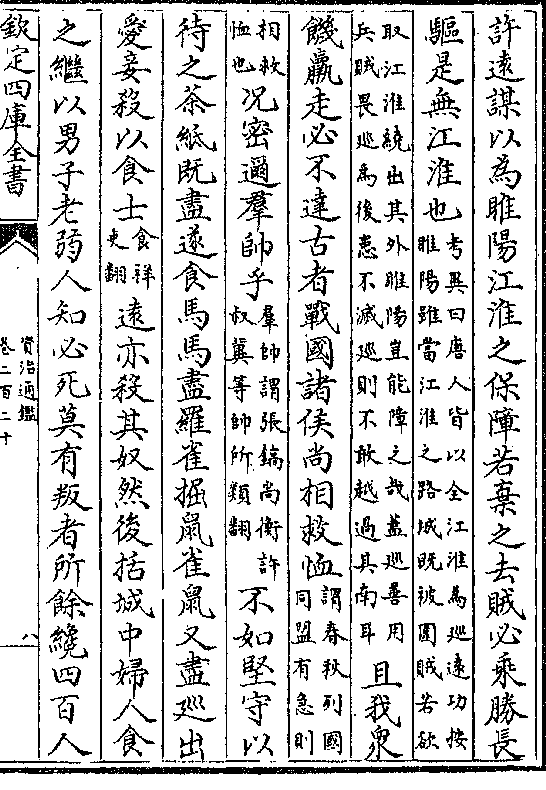 許遠謀以為睢陽江淮之保障若棄之去賊必乘勝長
驅是無江淮也考異曰唐人皆以全江淮為巡遠功按睢陽雖當江淮之路城既被圍賊若欲
取江淮繞出其外睢陽豈能障之哉蓋巡善用兵賊畏巡為後患不滅巡則不敢越過其南耳且我衆
饑羸走必不達古者戰國諸侯尚相救恤謂春秋列國同盟有急則
相救恤也况密邇羣帥乎羣帥謂張鎬尚衡許叔冀等帥所類翻不如堅守以
待之茶紙既盡遂食馬馬盡羅雀掘鼠雀鼠又盡巡出
愛妾殺以食士食祥吏翻遠亦殺其奴然後括城中婦人食
之繼以男子老弱人知必死莫有叛者所餘纔四百人
欽定四庫全書
資治通鑑
卷二百二十
八